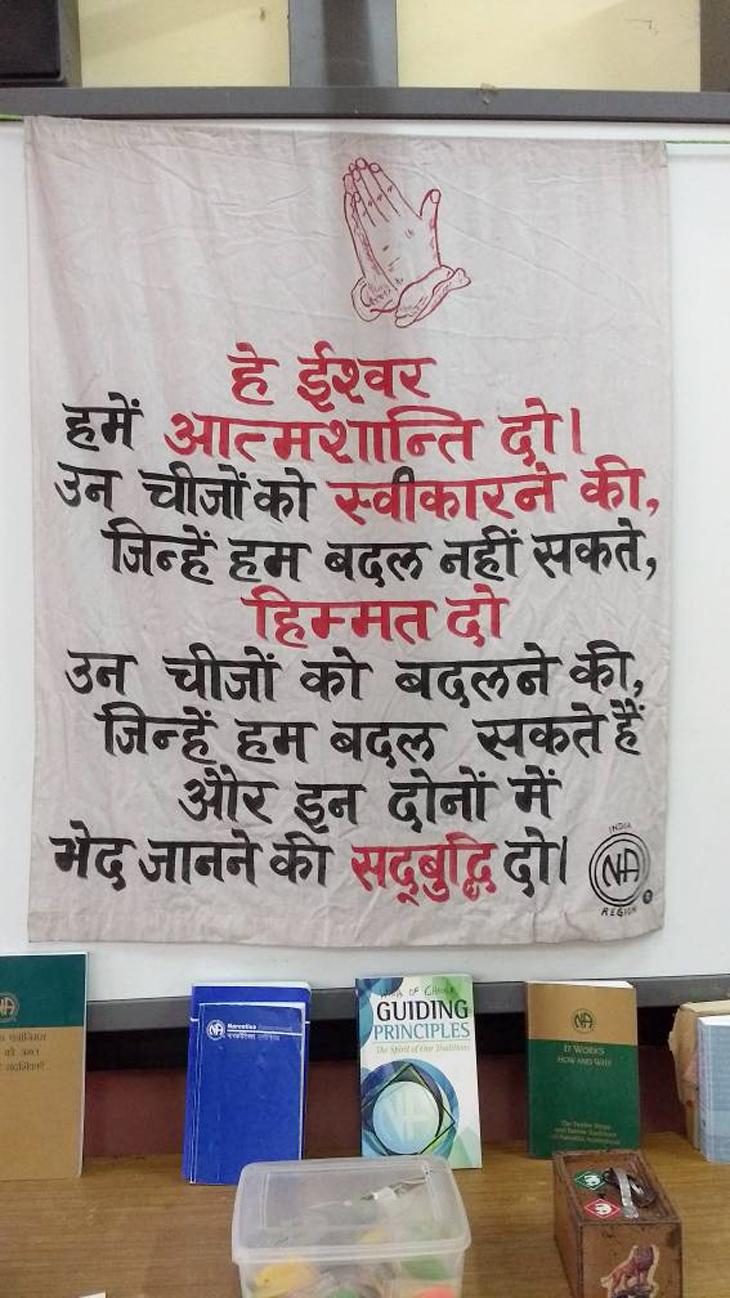 हे ईश्वर
हमें आत्मशान्ति दो।
उन चीजों को स्वीकारने की,
जिन्हें हम बदल नहीं सकते,
हिम्मत दो
उन चीजों को बदलने की,
जिन्हें हम बदल सकते हैं
और इन दोनों में
भेद जानने की सद्बुद्धि दो।
INDIA
NA
REGION
NA
NA Narcotics
WINDS OF CHANGE
GUIDING
PRINCIPLES
The Spirit of Our Traditions
NA
NA
IT WORKS
HOW AND WHY
The Twelve Steps
and Twelve Traditions
of Narcotics Anonymous